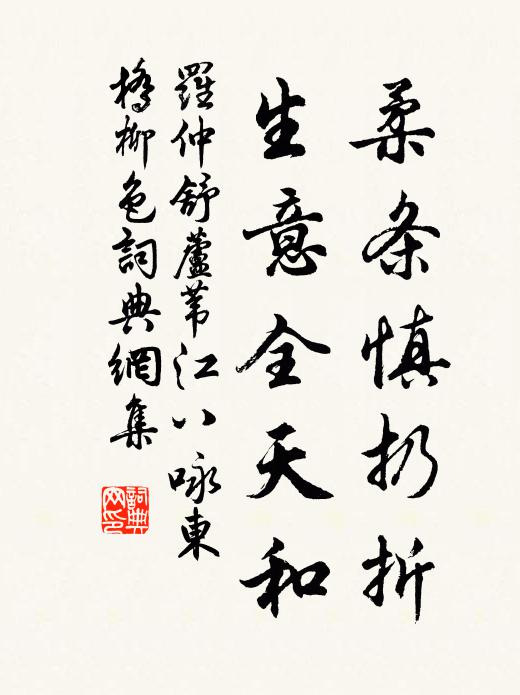 柔条慎扔折
生意全天和
羅仲舒蘆葦江八咏東
橋柳色詞典網集
詞典網印